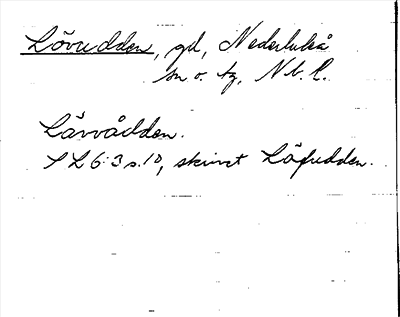 Lövudden, gd, Nederluleå
sn o. tg, N.b. l.
Lävvådden.
SL 6:3 s.10, skrivet Löfudden.